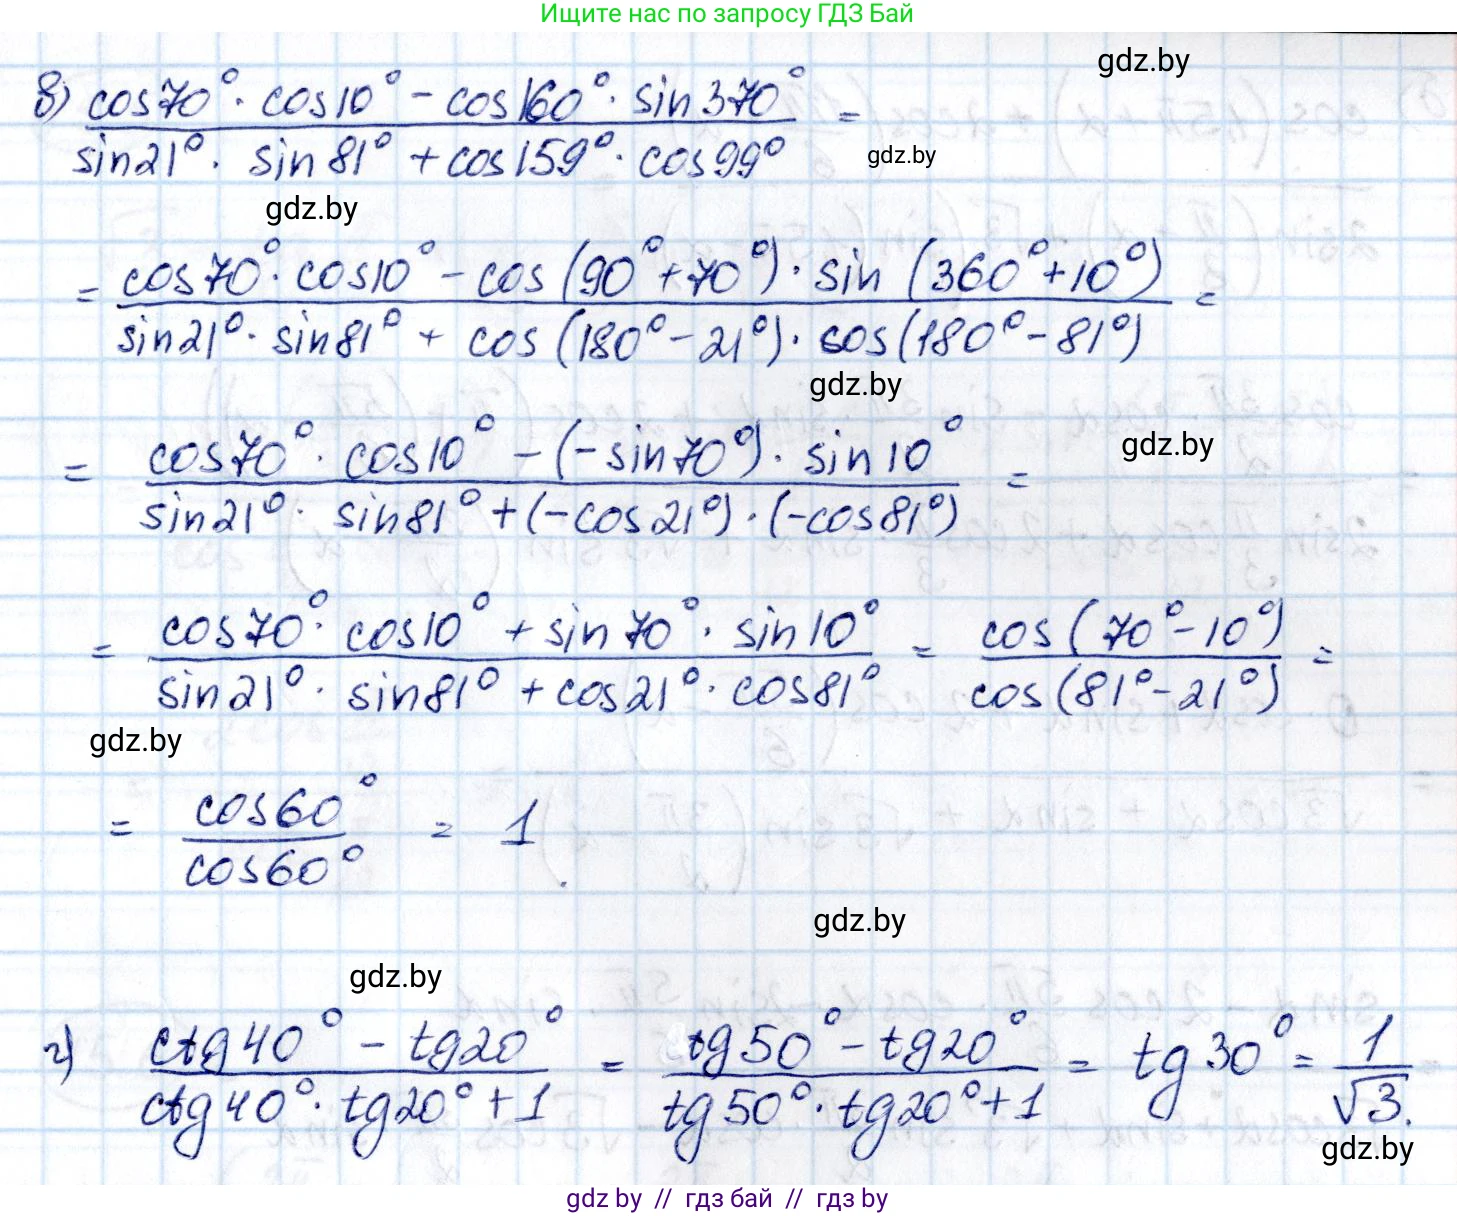 Ищите нас по запросу ГДЗ Бай
gdz.by
в) cos70° · cos10° − cos160° · sin370° / sin21° · sin81° + cos159° · cos99° =
gdz.by
gdz.by
= cos70° · cos10° − cos(90° + 70°) · sin(360° + 10°) / sin21° · sin81° + cos(180° − 21°) · cos(180° − 81°) =
gdz.by
gdz.by
= cos70° · cos10° − (−sin70°) · sin10° / sin21° · sin81° + (−cos21°) · (−cos81°) =
= cos70° · cos10° + sin70° · sin10° / sin21° · sin81° + cos21° · cos81° = cos(70° − 10°) / cos(81° − 21°) =
gdz.by
= cos60° / cos60° = 1.
gdz.by
gdz.by
г) ctg40° − tg20° / ctg40° · tg20° + 1 = tg50° − tg20° / tg50° · tg20° + 1 = tg30° = 1 / √3.
gdz.by
gdz by // гдз бай // гдз by